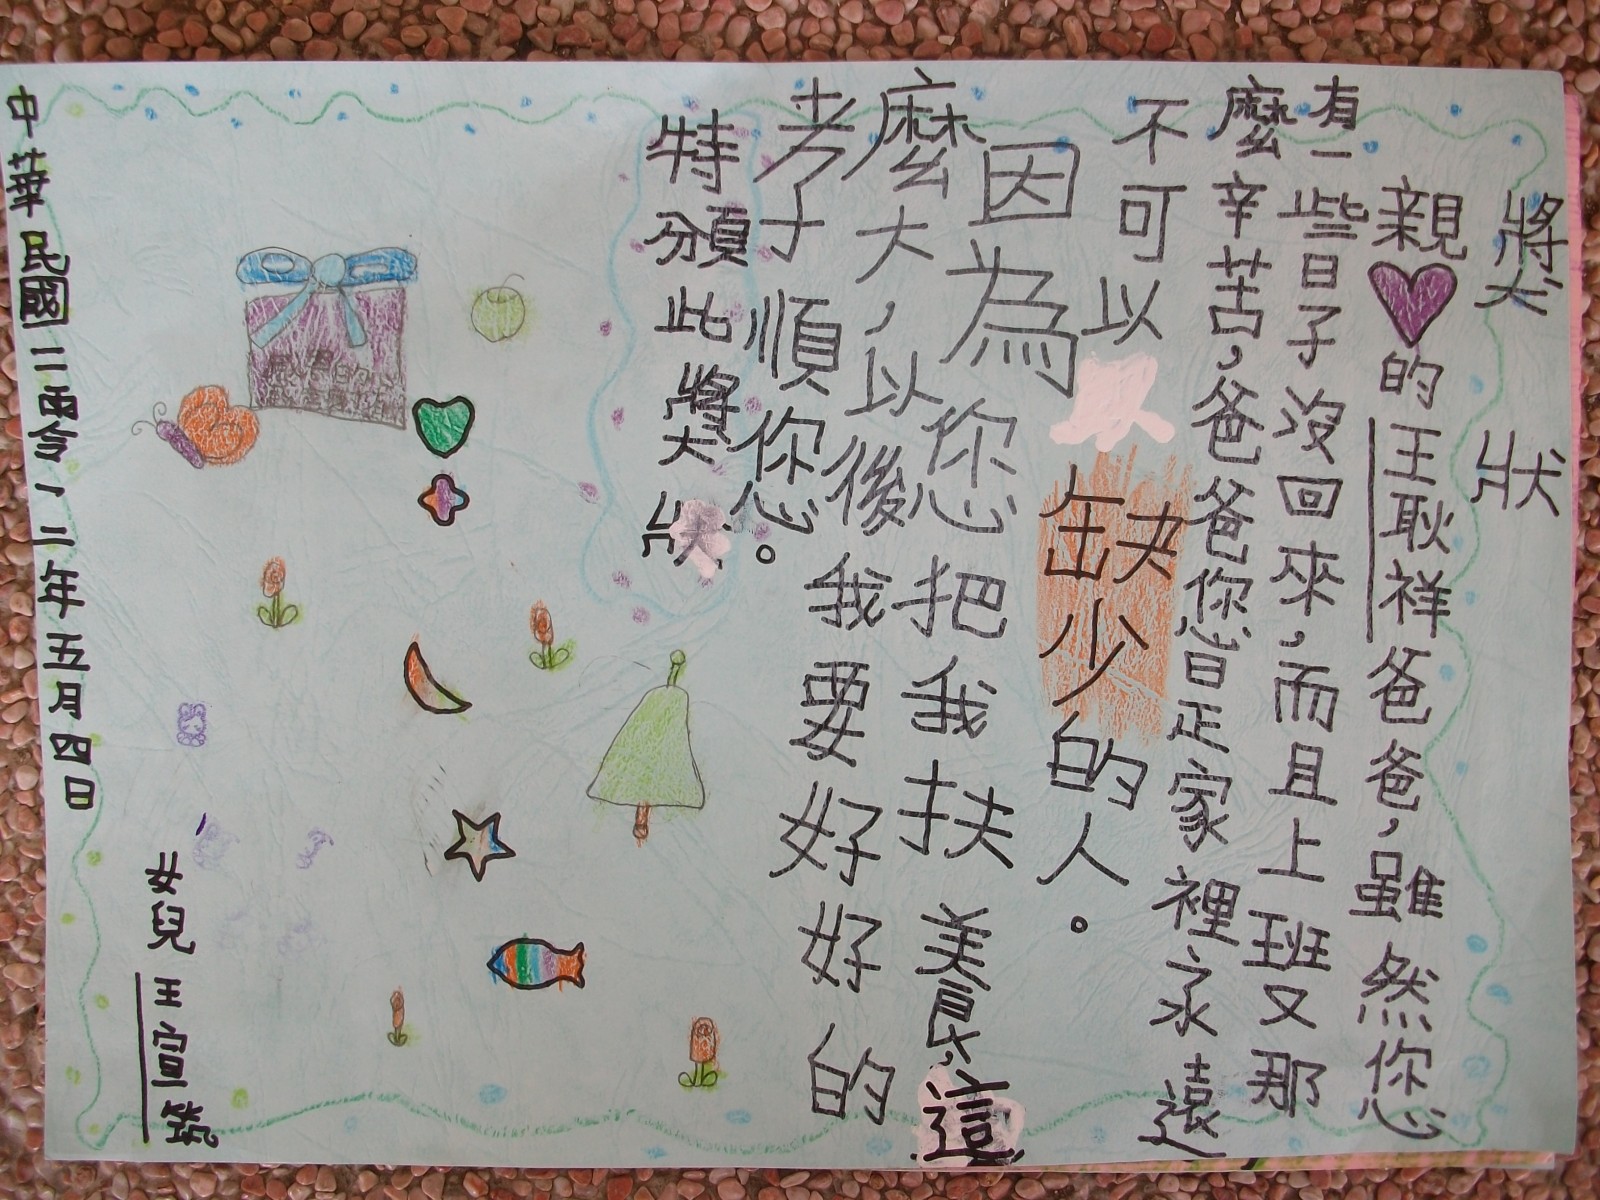 獎狀
親的王耿祥爸爸，雖然您
有一些日子沒回來，而且上班又那
麼辛苦，爸爸您是家裡永遠
不可以缺少的人。
因為您把我扶養，這
麼大，以後我要好好的
孝順您。
特頒此獎狀
中華民國一零二年五月四日
女兒王宣筑